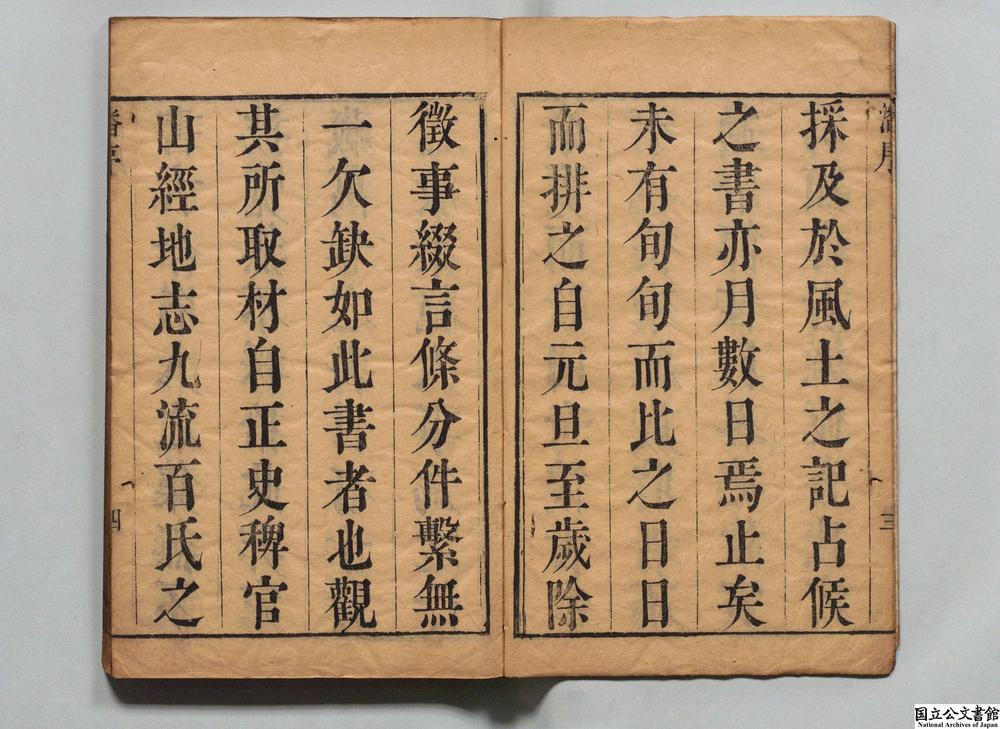 採及於風土之記占候
之書亦月數日焉止矣
未有旬旬而比之日日
而排之自元旦至歲除
徵事綴言條分件繫無
一欠缺如此書者也觀
其所取材自正史稗官
山經地志九流百氏之
潘序
三
潘序
四
国立公文書館
National Archives of Japan